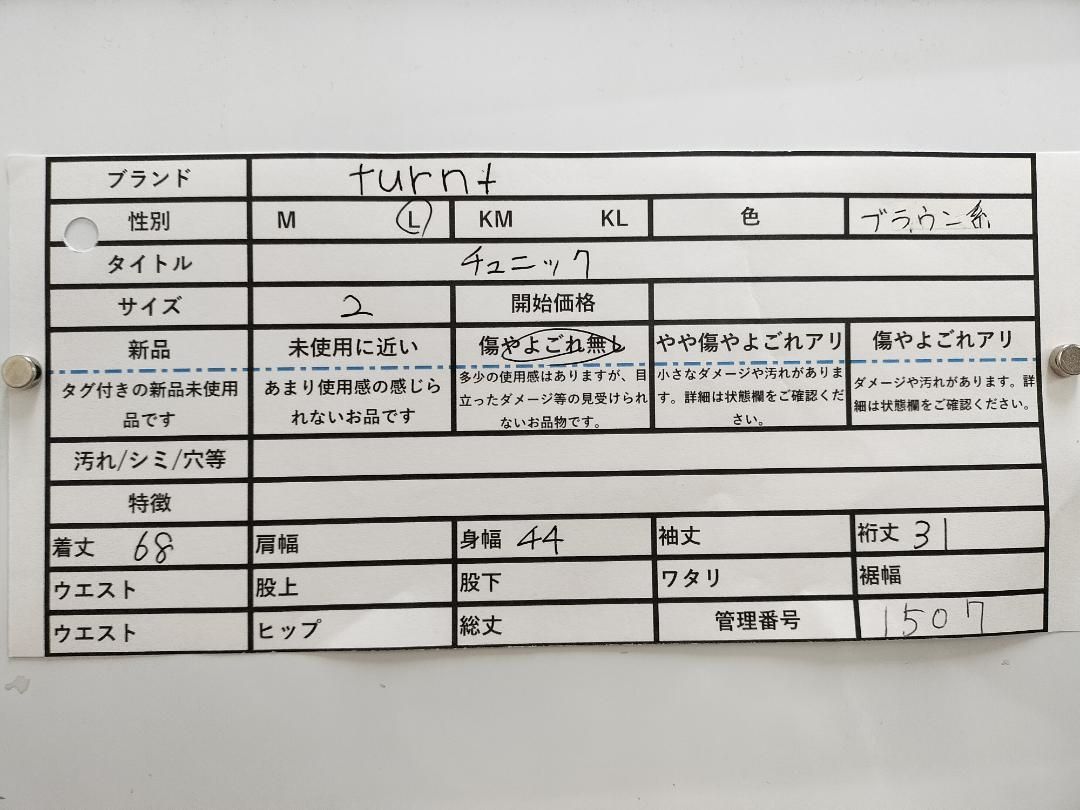 ブランド turnt
性別 M L KM KL 色 ブラウン系
タイトル チュニック
サイズ 2 開始価格
新品 未使用に近い 傷やよごれ無し やや傷やよごれアリ 傷やよごれアリ
タグ付きの新品未使用
品です
あまり使用感の感じら
れないお品です
多少の使用感はありますが、目
立ったダメージ等の見受けられ
ないお品物です。
小さなダメージや汚れがありま
す。詳細は状態欄をご確認くだ
さい。
ダメージや汚れがあります。詳
細は状態欄をご確認ください。
汚れ/シミ/穴等
特徴
着丈 68 肩幅 身幅 44 袖丈 裄丈 31
ウエスト 股上 股下 ワタリ 裾幅
ウエスト ヒップ 総丈 管理番号 1507